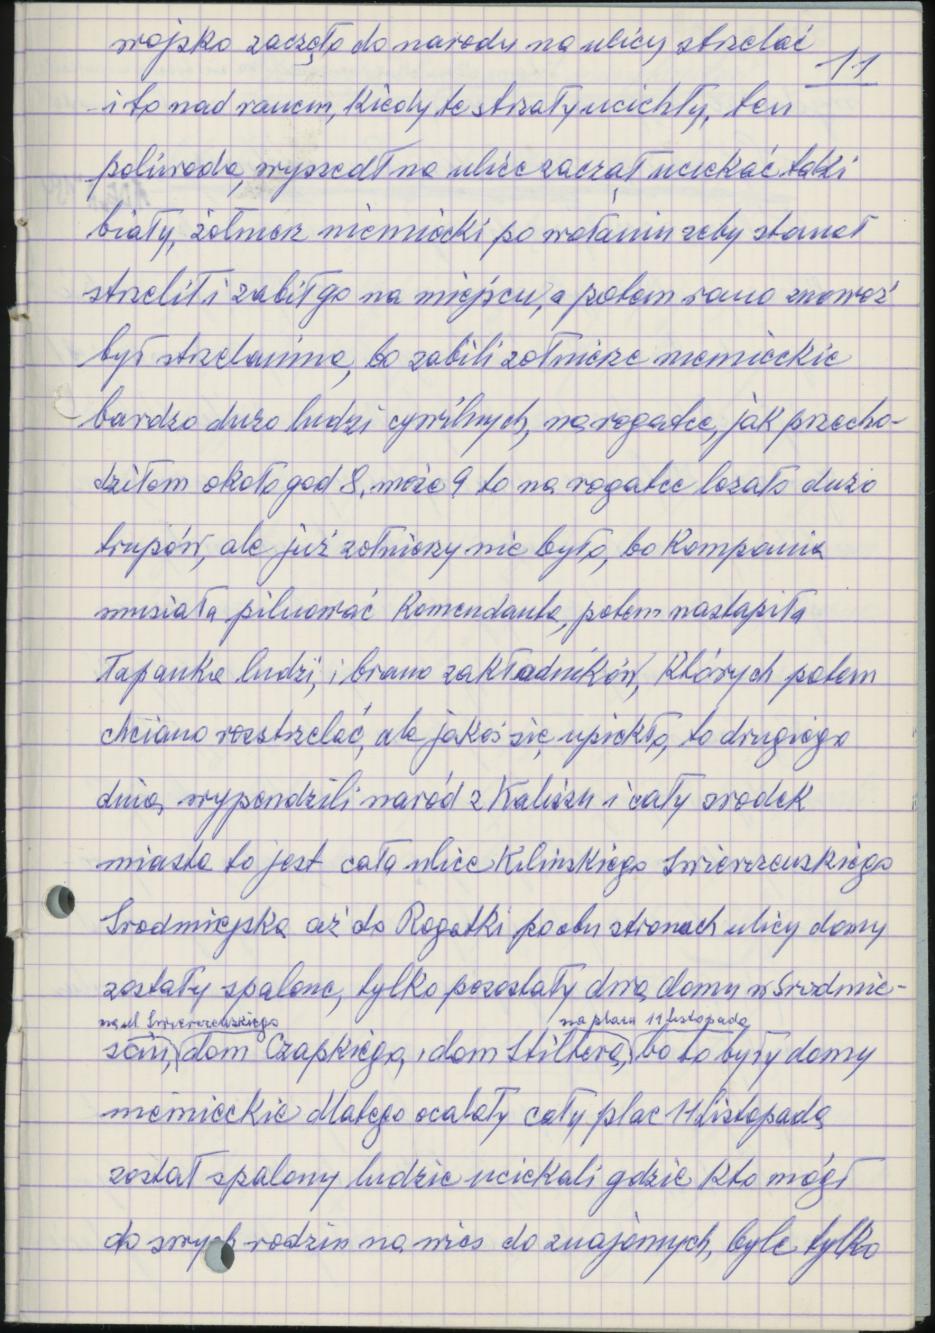 wojsko zaczęło do narodu na ulicy strzelać
11
i to nad ranem, kiedy te strzały ucichły, ten
poliwoda, wyszedł na ulice zaczął uciekać taki
biały, żołnierz niemiecki po wołaniu zeby stanoł
strzelił i zabił go na miejscu, a potem rano znowoż
był strzelanina, bo zabili zołnierze niemieckie
bardzo dużo ludzi cywilnych, na rogatce, jak przecho-
dziłem około god 8, może 9 to na rogatce lezało dużo
trupów, ale już zołnierzy nie było, bo Kompania
musiała pilnować Komendanta, potem nastąpiła
łapanka ludzi, i brano zakładników, których potem
chciano rozstrzelać, ale jakoś się upiekło, to drugiego
dnia, wypendzili naród z Kalisza i cały srodek
miasta to jest cała ulice Kilinskiego Swierzewskiego
Srodmiejska aż do Rogatki po obu stronach ulicy domy
zostały spalone, tylko pozostały dwa domy w Srodmie-
na ul Swierczewskiego na placu 11 listopada
sciu, (dom Czapkiega, i dom Stillera,) bo to były domy
niemieckie dlatego ocalały cały plac 11 Listopada
został spalony ludzie uciekali gdzie kto mógł
do swych rodzin na wies do znajomych, byle tylko